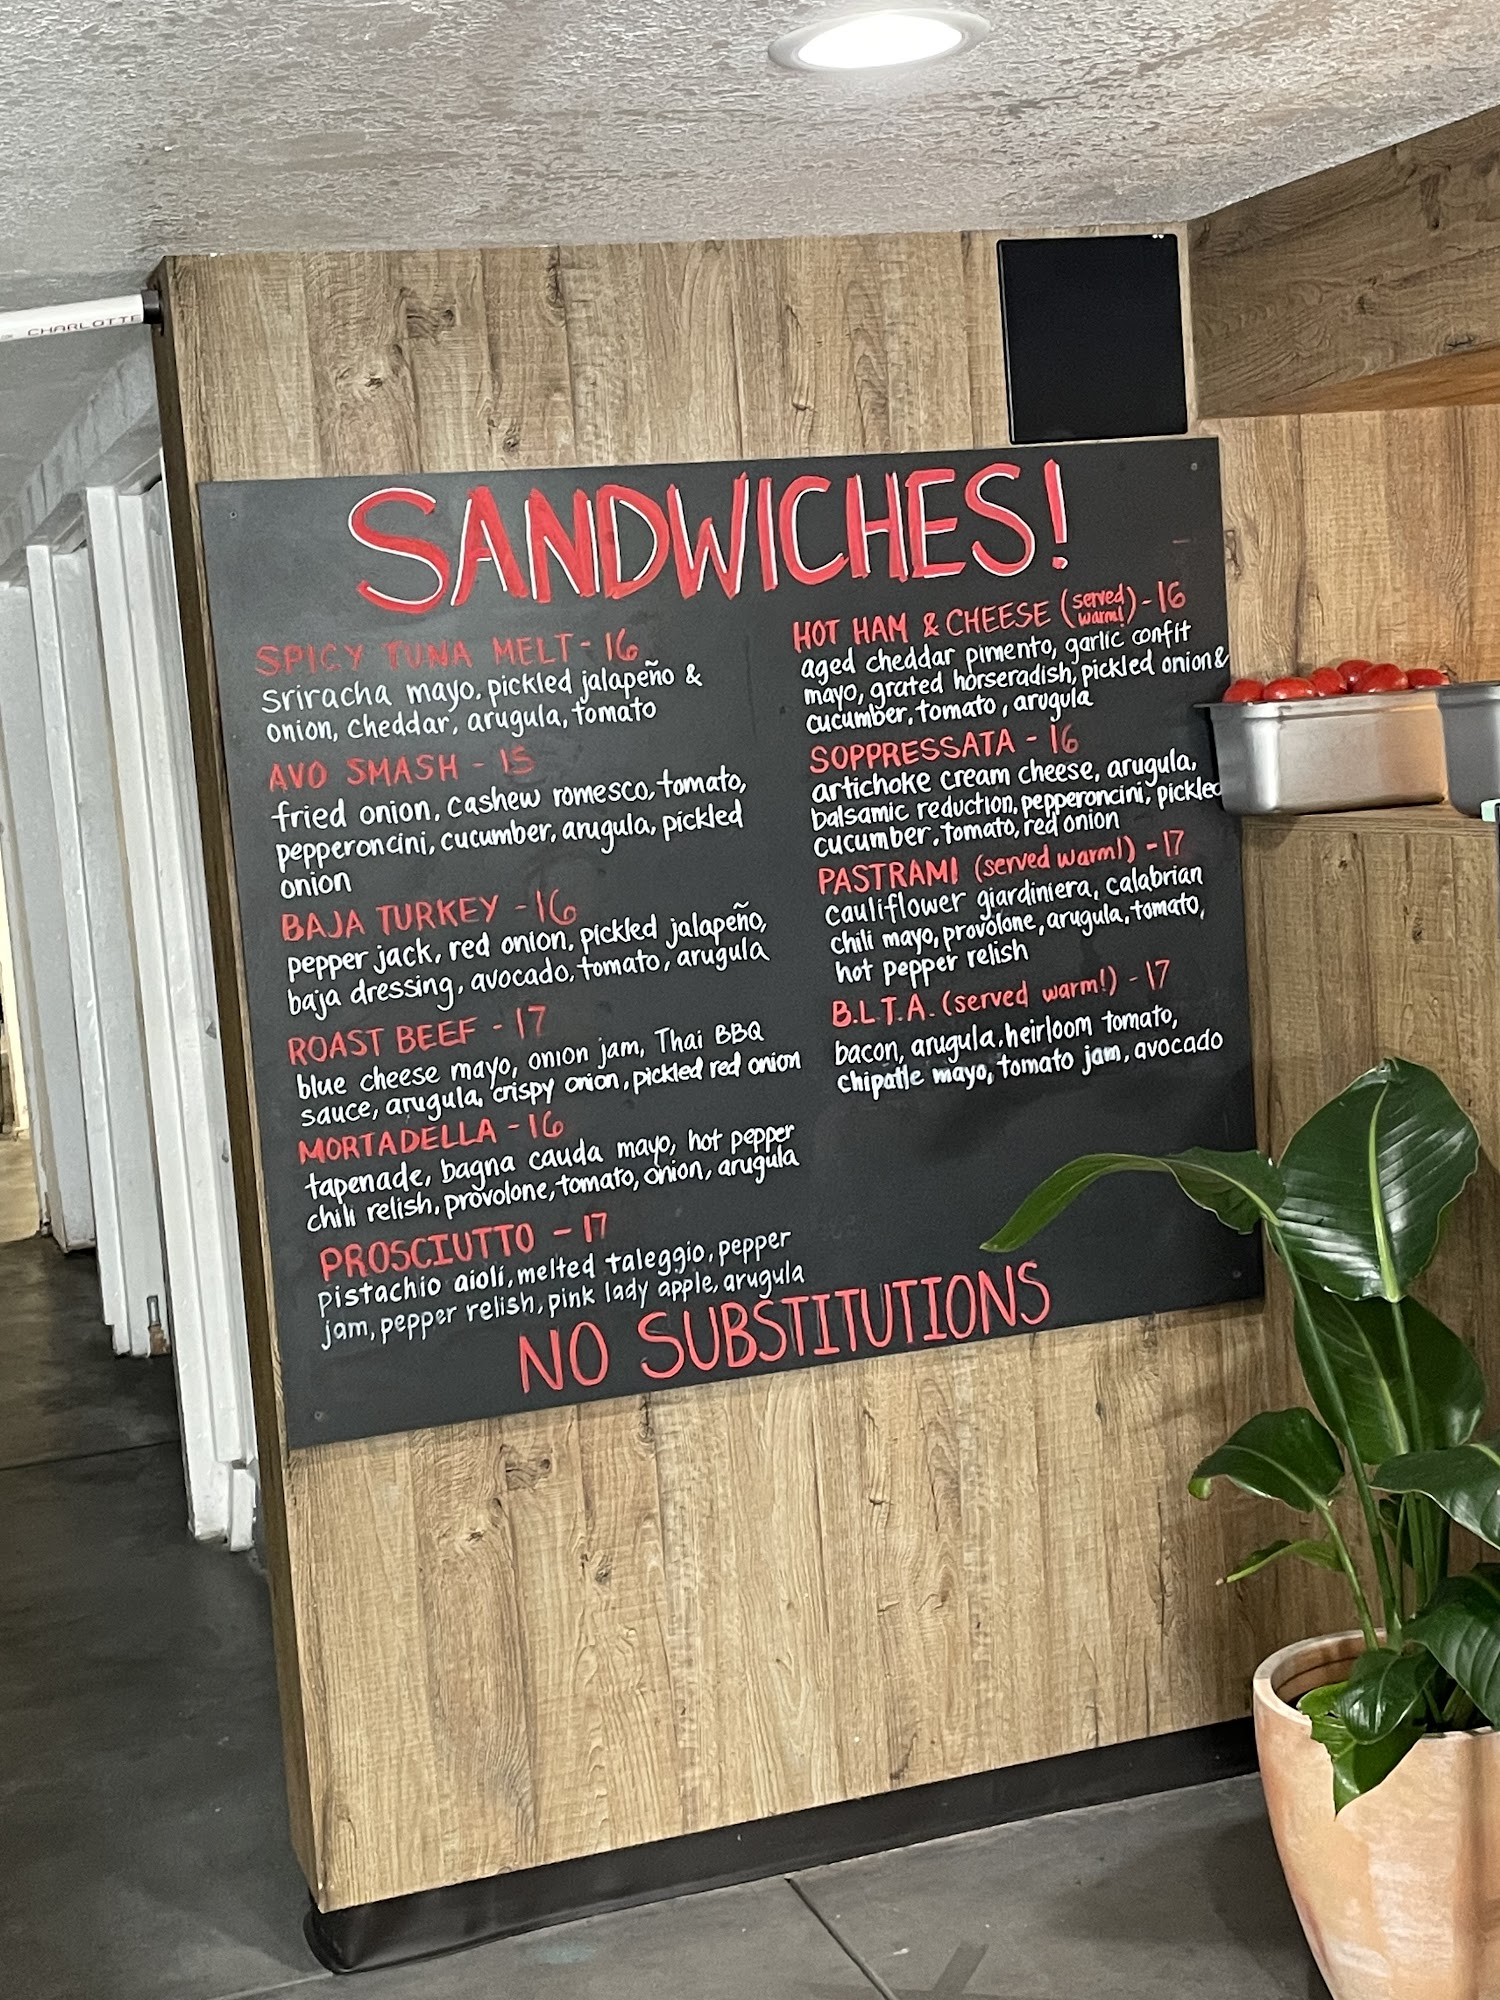 CHARLOTTE
SANDWICHES!
SPICY TUNA MELT - 16
sriracha mayo, pickled jalapeño &
onion, cheddar, arugula, tomato
AVO SMASH - 15
fried onion, cashew romesco, tomato,
pepperoncini, cucumber, arugula, pickled
onion
BAJA TURKEY - 16
pepper jack, red onion, pickled jalapeño,
baja dressing, avocado, tomato, arugula
ROAST BEEF - 17
blue cheese mayo, onion jam, Thai BBQ
sauce, arugula, crispy onion, pickled red onion
MORTADELLA - 16
tapenade, bagna cauda mayo, hot pepper
chili relish, provolone, tomato, onion, arugula
PROSCIUTTO - 17
pistachio aioli, melted taleggio, pepper
jam, pepper relish, pink lady apple, arugula
HOT HAM & CHEESE (served warm!) - 16
aged cheddar pimento, garlic confit
mayo, grated horseradish, pickled onion &
cucumber, tomato, arugula
SOPPRESSATA - 16
artichoke cream cheese, arugula,
balsamic reduction, pepperoncini, pickled
cucumber, tomato, red onion
PASTRAMI (served warm!) - 17
cauliflower giardiniera, calabrian
chili mayo, provolone, arugula, tomato,
hot pepper relish
B.L.T.A. (served warm!) - 17
bacon, arugula, heirloom tomato,
chipotle mayo, tomato jam, avocado
NO SUBSTITUTIONS